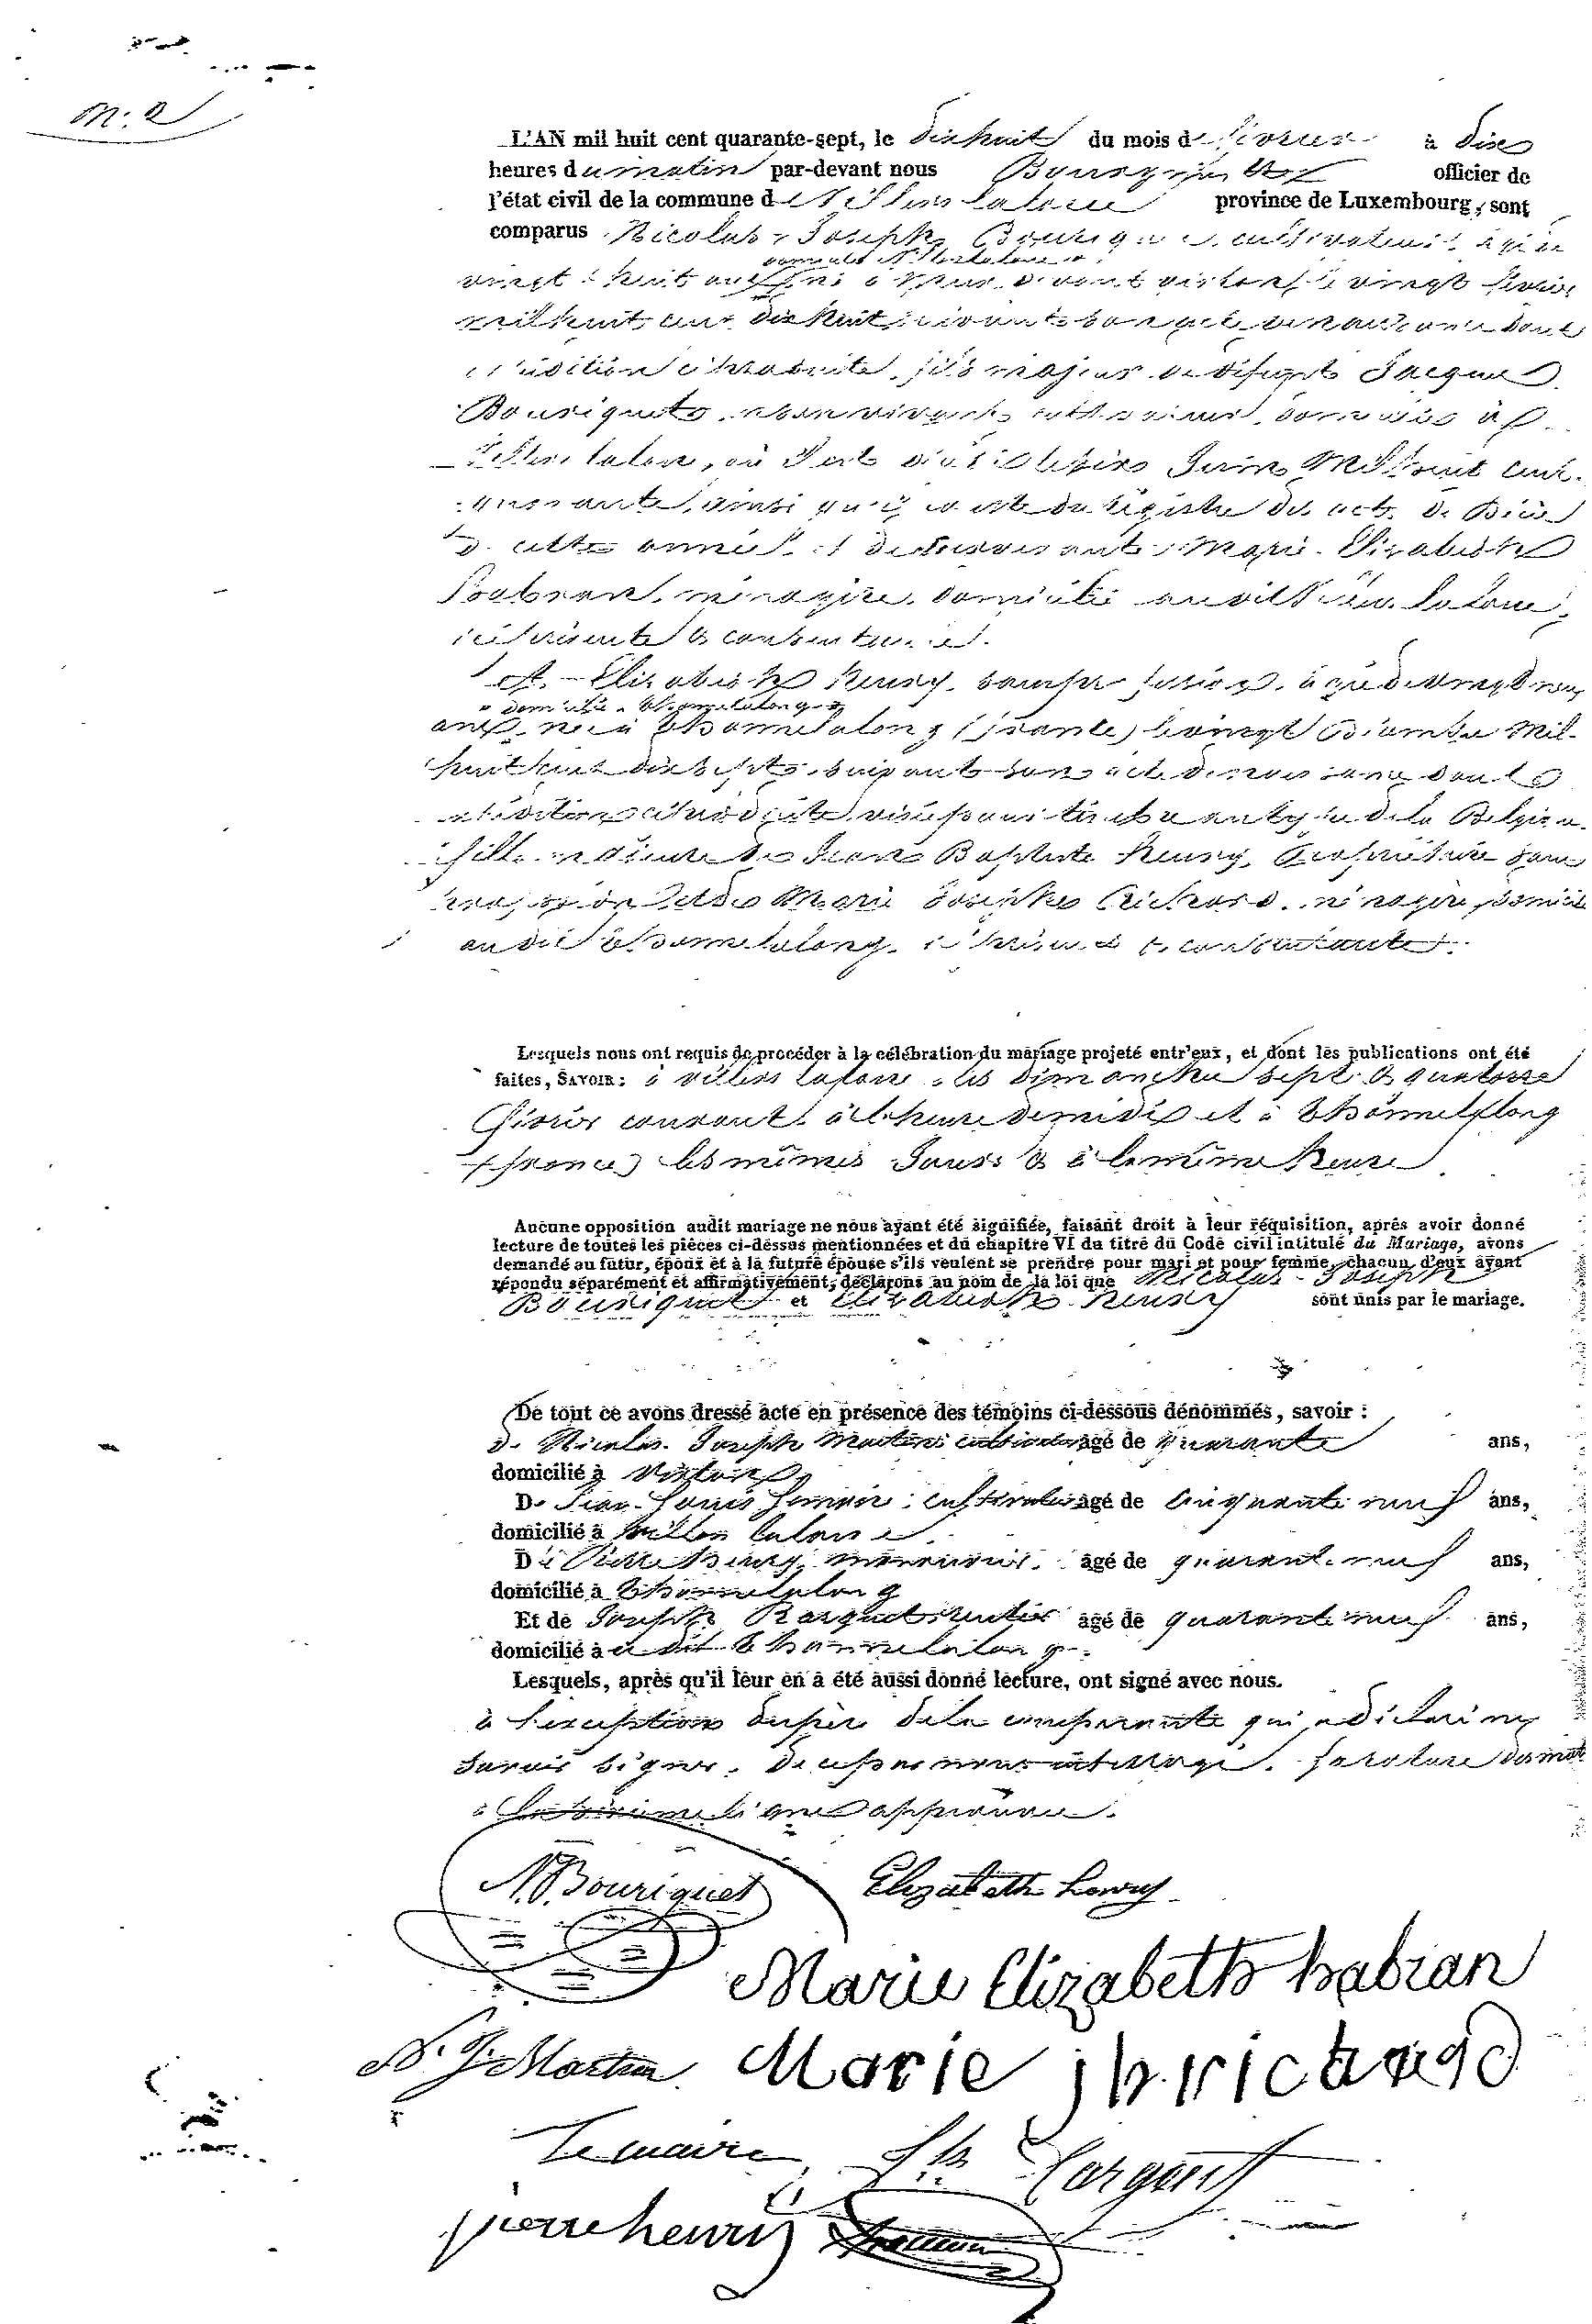 N: 2
L'AN mil huit cent quarante-sept, le dixhuit du mois de février à dix
heures du matin par-devant nous officier de
l'état civil de la commune de Villers laloue province de Luxembourg, sont
comparus Nicolas-Joseph Bouriquet cultivateur, âgé de
domicilié à Villers laloue
vingt huit ans, né à devant virton, le vingt février
mil huit cent dix huit, suivant son acte de naissance dont
l'édition est produite, fils majeur de défunt Jacques
Bouriquet, en son vivant cultivateur, domicilié à
Villers laloue, où il est décédé le six Juin Mil huit cent
quarante, ainsi qu'il conste du registre des actes de Décès
de cette année, et de survivante, Marie-Elizabeth
habran, ménagère, domiciliée audit Villers laloue,
ici présente & consentante.
Et Elizabeth henry, sans profession, âgée de vingt neuf
domiciliée à thonnelalong
ans, née à thonnelalong (france) le vingt Décembre Mil
huit cent dix sept, suivant son acte de naissance dont
l'édition est produite, visée pour timbre de la Belgique
fille de Jean Baptiste henry, Propriétaire sans
profession, et de Marie Josephe Richard, ménagère, domiciliés
audit thonnelalong, ici présents & consentants.
Lesquels nous ont requis de procéder à la célébration du mariage projeté entr'eux, et dont les publications ont été
faites, SAVOIR: à villers laloue, les dimanches sept & quatorze
février courant, à l'heure de midi et à thonnelalong
(france) les mêmes Jours & à la même heure.
Aucune opposition audit mariage ne nous ayant été signifiée, faisant droit à leur réquisition, après avoir donné
lecture de toutes les pièces ci-dessus mentionnées et du chapitre VI du titre du Code civil intitulé du Mariage, avons
demandé au futur, époux et à la future épouse s'ils veulent se prendre pour mari et pour femme, chacun d'eux ayant
répondu séparément et affirmativement, déclarons au nom de la loi que Nicolas-Joseph
Bouriquet et Elizabeth henry sont unis par le mariage.
De tout ce avons dressé acte en présence des témoins ci-dessous dénommés, savoir:
de Nicolas Joseph Martin, cultivateur âgé de quarante ans,
domicilié à virton,
De Jean Louis cultivateur âgé de cinquante neuf ans,
domicilié à Villers laloue.
De Pierre henry, âgé de quarante neuf ans,
domicilié à thonnelalong
Et de Joseph rentier âgé de quarante neuf ans,
domicilié à audit thonnelalong.
Lesquels, après qu'il leur en a été aussi donné lecture, ont signé avec nous.
à l'exception du père de la comparante qui a déclaré ne
savoir signer, de ce par nous interrogé. la rature du mot
à la ligne approuvée.
N. J. Bouriquet Elizabeth henry
Marie Elizabeth habran
N. J. Martin Marie jh. richard
Lemaire
pierre henry